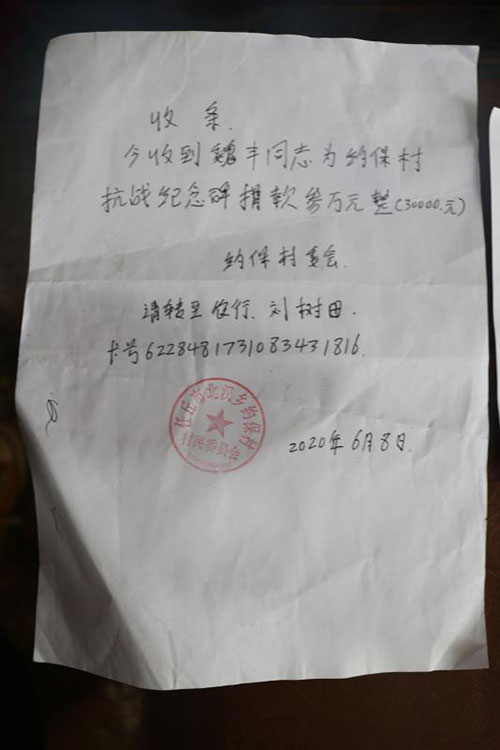 收条.
今收到魏丰同志为约保村
抗战纪念碑捐款叁万元整(30000.元)
约保村委会.
请转至农行.刘树田.
卡号6228481731083431816.
任丘市北汉乡约保村
村民委员会
2020年6月8日.